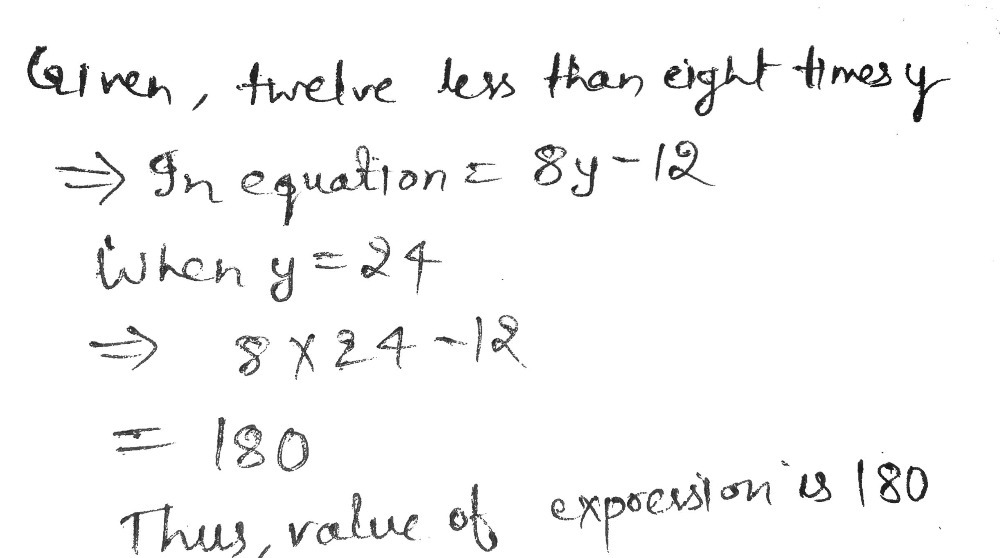 Given, twelve less than eight times y
⇒ In equation = 8y-12
When y = 24
⇒ 8 × 24 - 12
= 180
Thus, value of expression is 180